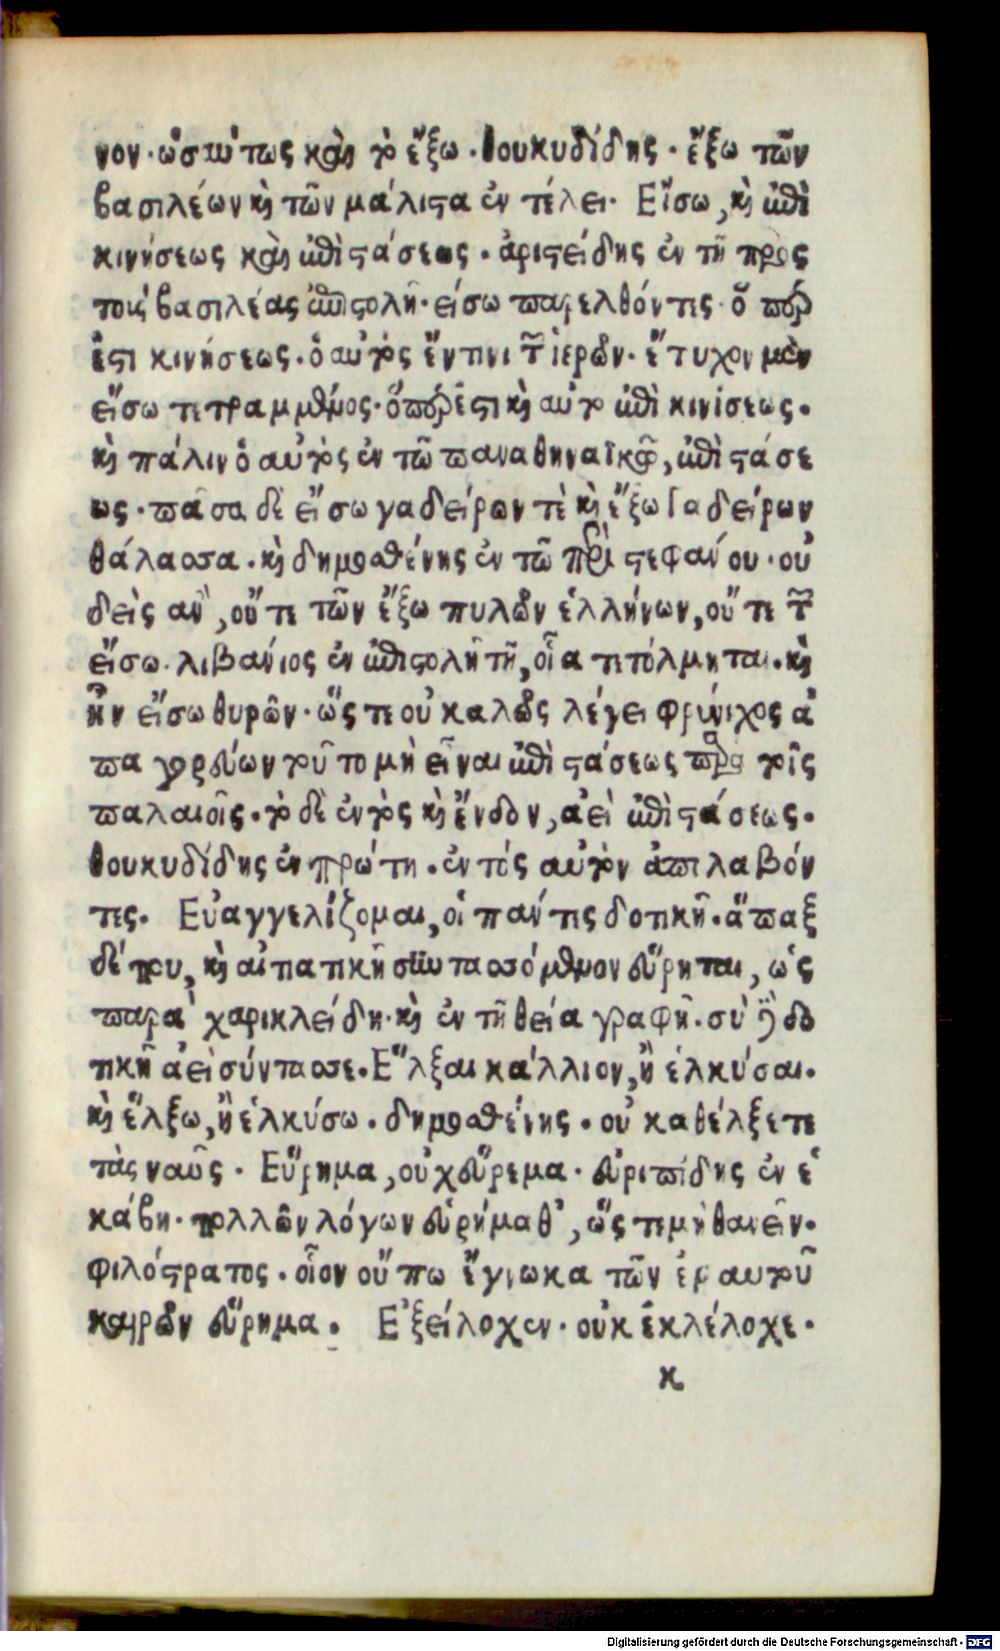 νον· ὡσαύτως καὶ τὸ ἔξω. θουκυδίδης· ἔξω τῶν
βασιλέων καὶ τῶν μάλιστα ἐν τέλει. Εἴσω, καὶ ἐπὶ
κινήσεως καὶ ἐπὶ στάσεως. ἀριστείδης ἐν τῇ πρὸς
τοὺς βασιλέας ἐπιστολῇ· εἴσω παρελθόντες· ὅ περ
ἐστὶ κινήσεως. ὁ αὐτὸς ἔν τινι τῶν ἱερῶν· ἔτυχον μὲν
εἴσω τετραμμένος· ὅπερ ἐστὶ καὶ αὐτὸ ἐπὶ κινίσεως.
καὶ πάλιν ὁ αὐτὸς ἐν τῶ παναθηναϊκῷ, ἐπὶ στάσε
ως· πᾶσα δὲ εἴσω γαδείρων τὲ καὶ ἔξω Γαδείρων
θάλασσα. καὶ δημοσθένης ἐν τῶ περὶ στεφάνου· οὐ
δεὶς ἂν, οὔτε τῶν ἔξω πυλῶν ἑλλήνων, οὔτε τῶν
εἴσω. λιβάνιος ἐν ἐπιστολῇ τῇ, οἷα τετόλμηται. καὶ
ἦν εἴσω θυρῶν· ὥστε οὐ καλῶς λέγει φρύνιχος ἀ
παγορεύων τοῦτο μὴ εἶναι ἐπὶ στάσεως παρὰ τοῖς
παλαιοῖς. τὸ δὲ ἐντὸς καὶ ἔνδον, ἀεὶ ἐπὶ στάσεως.
θουκυδίδης ἐν πρώτη. ἐντὸς αὐτὸν ἀπιλαβόν
τες. Εὐαγγελίζομαι, οἱ πάντες δοτικῇ. ἅπαξ
δέ που, καὶ αἰτιατικῇ συντασσόμενον εὕρηται, ὡς
παρὰ χαρικλείδη. καὶ ἐν τῇ θεία γραφῇ. σὺ γὰρ δο
τικῇ ἀεὶ σύντασσε. Ἕλξαι κάλλιον, ἢ ἑλκύσαι.
καὶ ἕλξω, ἢ ἑλκύσω. δημοσθένης. οὐ καθέλξετε
τὰς ναῦς. Εὕρημα, οὐχ εὕρεμα. εὐριπίδης ἐν ἑ
κάβη. πολλῶν λόγων εὑρήμαθ', ὥστε μὴ θανεῖν.
φιλόστρατος. οἷον οὔπω ἔγνωκα τῶν ἐμαυτοῦ
καιρῶν εὕρημα. Ἐξείλοχεν. οὐκ ἐκλέλοχε.
κ
Digitalisierung gefördert durch die Deutsche Forschungsgemeinschaft - DFG